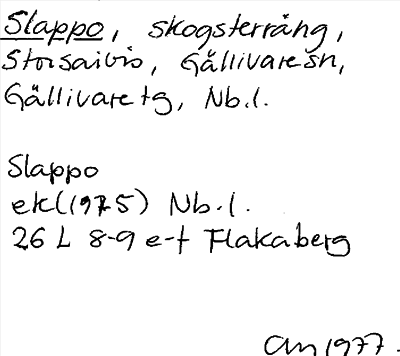 Slappo, skogsterräng,
Storsaivis, Gällivare sn,
Gällivare tg, Nb.l.
Slappo
ek(1975) Nb.l.
26 L 8-9 e-f Flakaberg
1977.